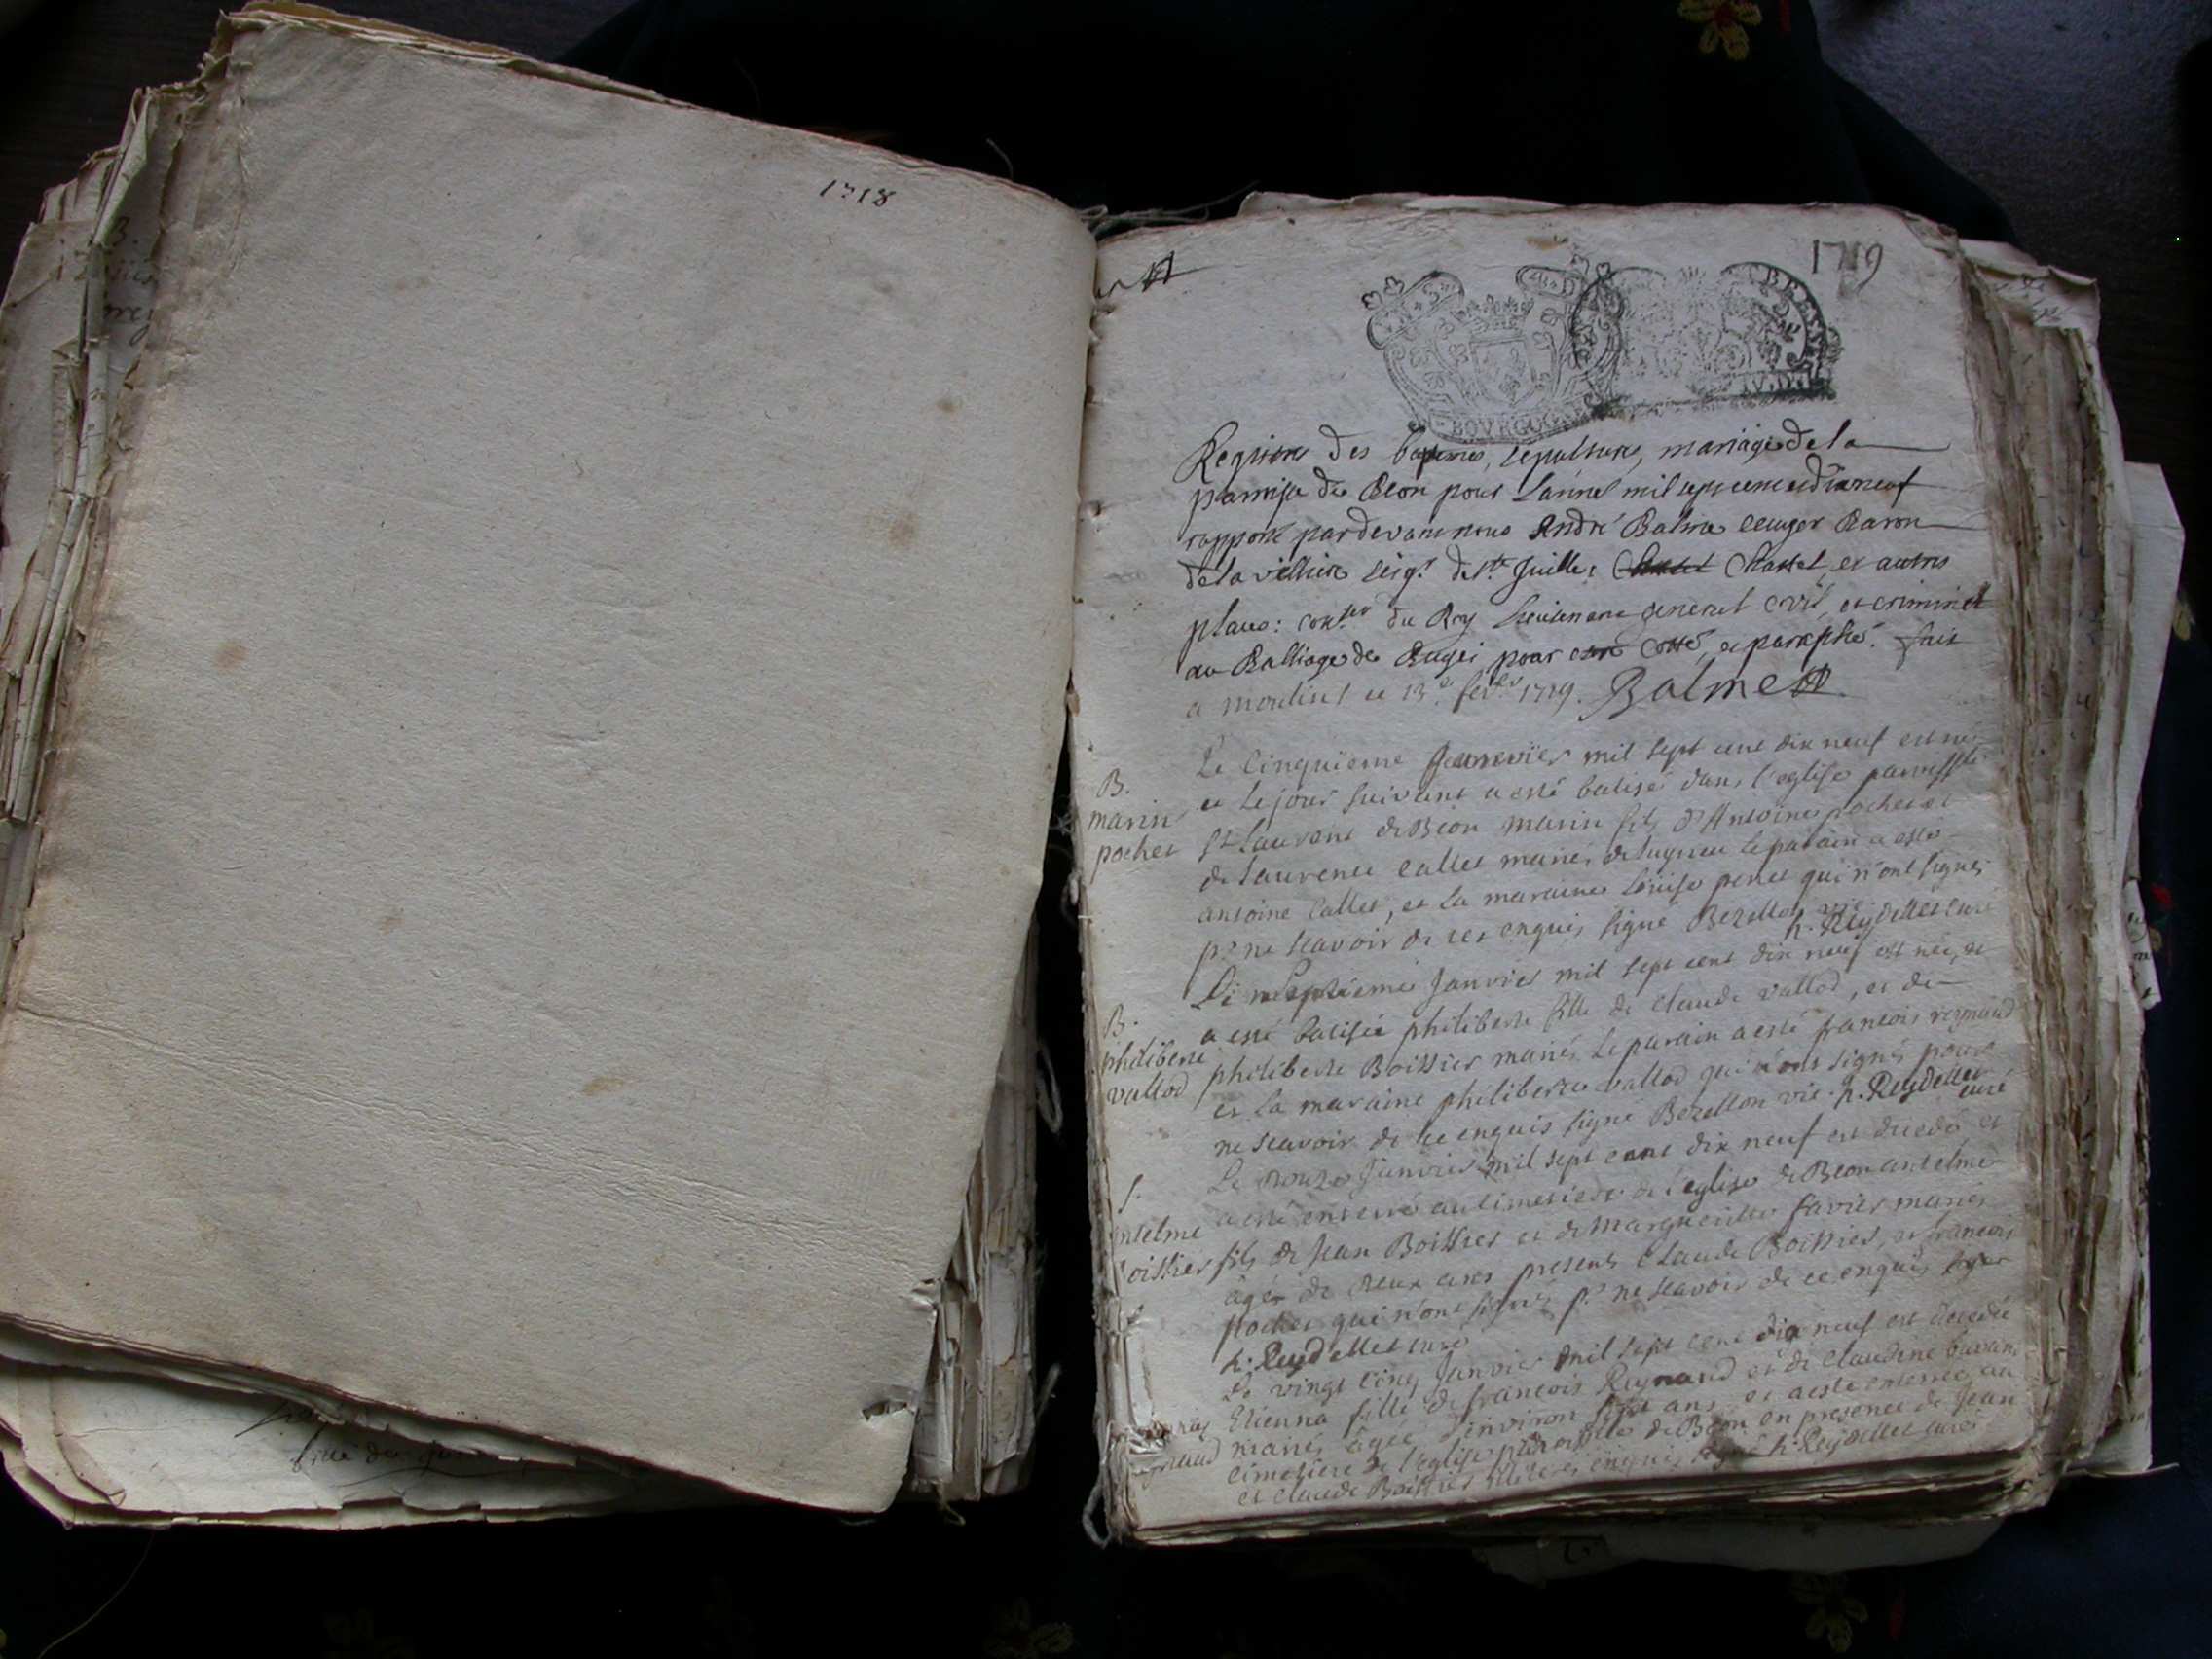 1718
1719
BOVRGOGNE
BRESSE
Registre des baptemes, sepultures, mariages de la
parroisse de Beon pour lannee mil sept cent et dix neuf
rapporté pardevant nous André Balme ecuyer Baron
de la velliere seigr. de ste Juille, Chastel et autres
places: conser du Roy Lieutenant general civil, et criminel
au Balliage de Bugei pour estre Cotté, et paraphé. fait
a moulins ce 13e fevrier 1719. Balme
B.
marin
pochet
Le Cinquieme Janvier mil sept cent dix neuf est né
et le jour suivant a esté batisé dans l'eglise parroissle
St Laurent de Beon marin fils d'Antoine pochet et
de laurence Callet mariés de luyrieu le parain a esté
antoine Callet, et la maraine Loüise penet qui n'ont signés
pr. ne scavoir de ce enquis signé Berellon vic. h. Reydellet curé
B.
philiberte
vallod
Le Septieme Janvier mil sept cent dix neuf est née, et
a esté batisée philiberte fille de claude vallod, et de
philiberte Boissier mariés le parain a esté francois reynaud
et la maraine philiberte vallod qui n'ont signés pour
ne scavoir de ce enquis signé Berellon vic. h. Reydellet curé
S.
antelme
boissier
Le douze Janvier mil sept cent dix neuf est decedé et
a esté enterré au cimetiere de l'eglise de Beon antelme
fils de Jean Boissier et de Marguerite favier mariés
âgé de deux ans presents Claude Boissier, et francois
pochet qui n'ont signés pr. ne scavoir de ce enquis
h. Reydellet curé
Le vingt Cinq Janvier mil sept cent dix neuf est decedée
Etienna fille de francois Reynaud et de Claudine
mariés âgée d'environ sept ans et a esté enterrée au
cimetiere de l'eglise parroissle de Beon en presence de Jean
et claude Boissier illiteres enquis signé h. Reydellet curé